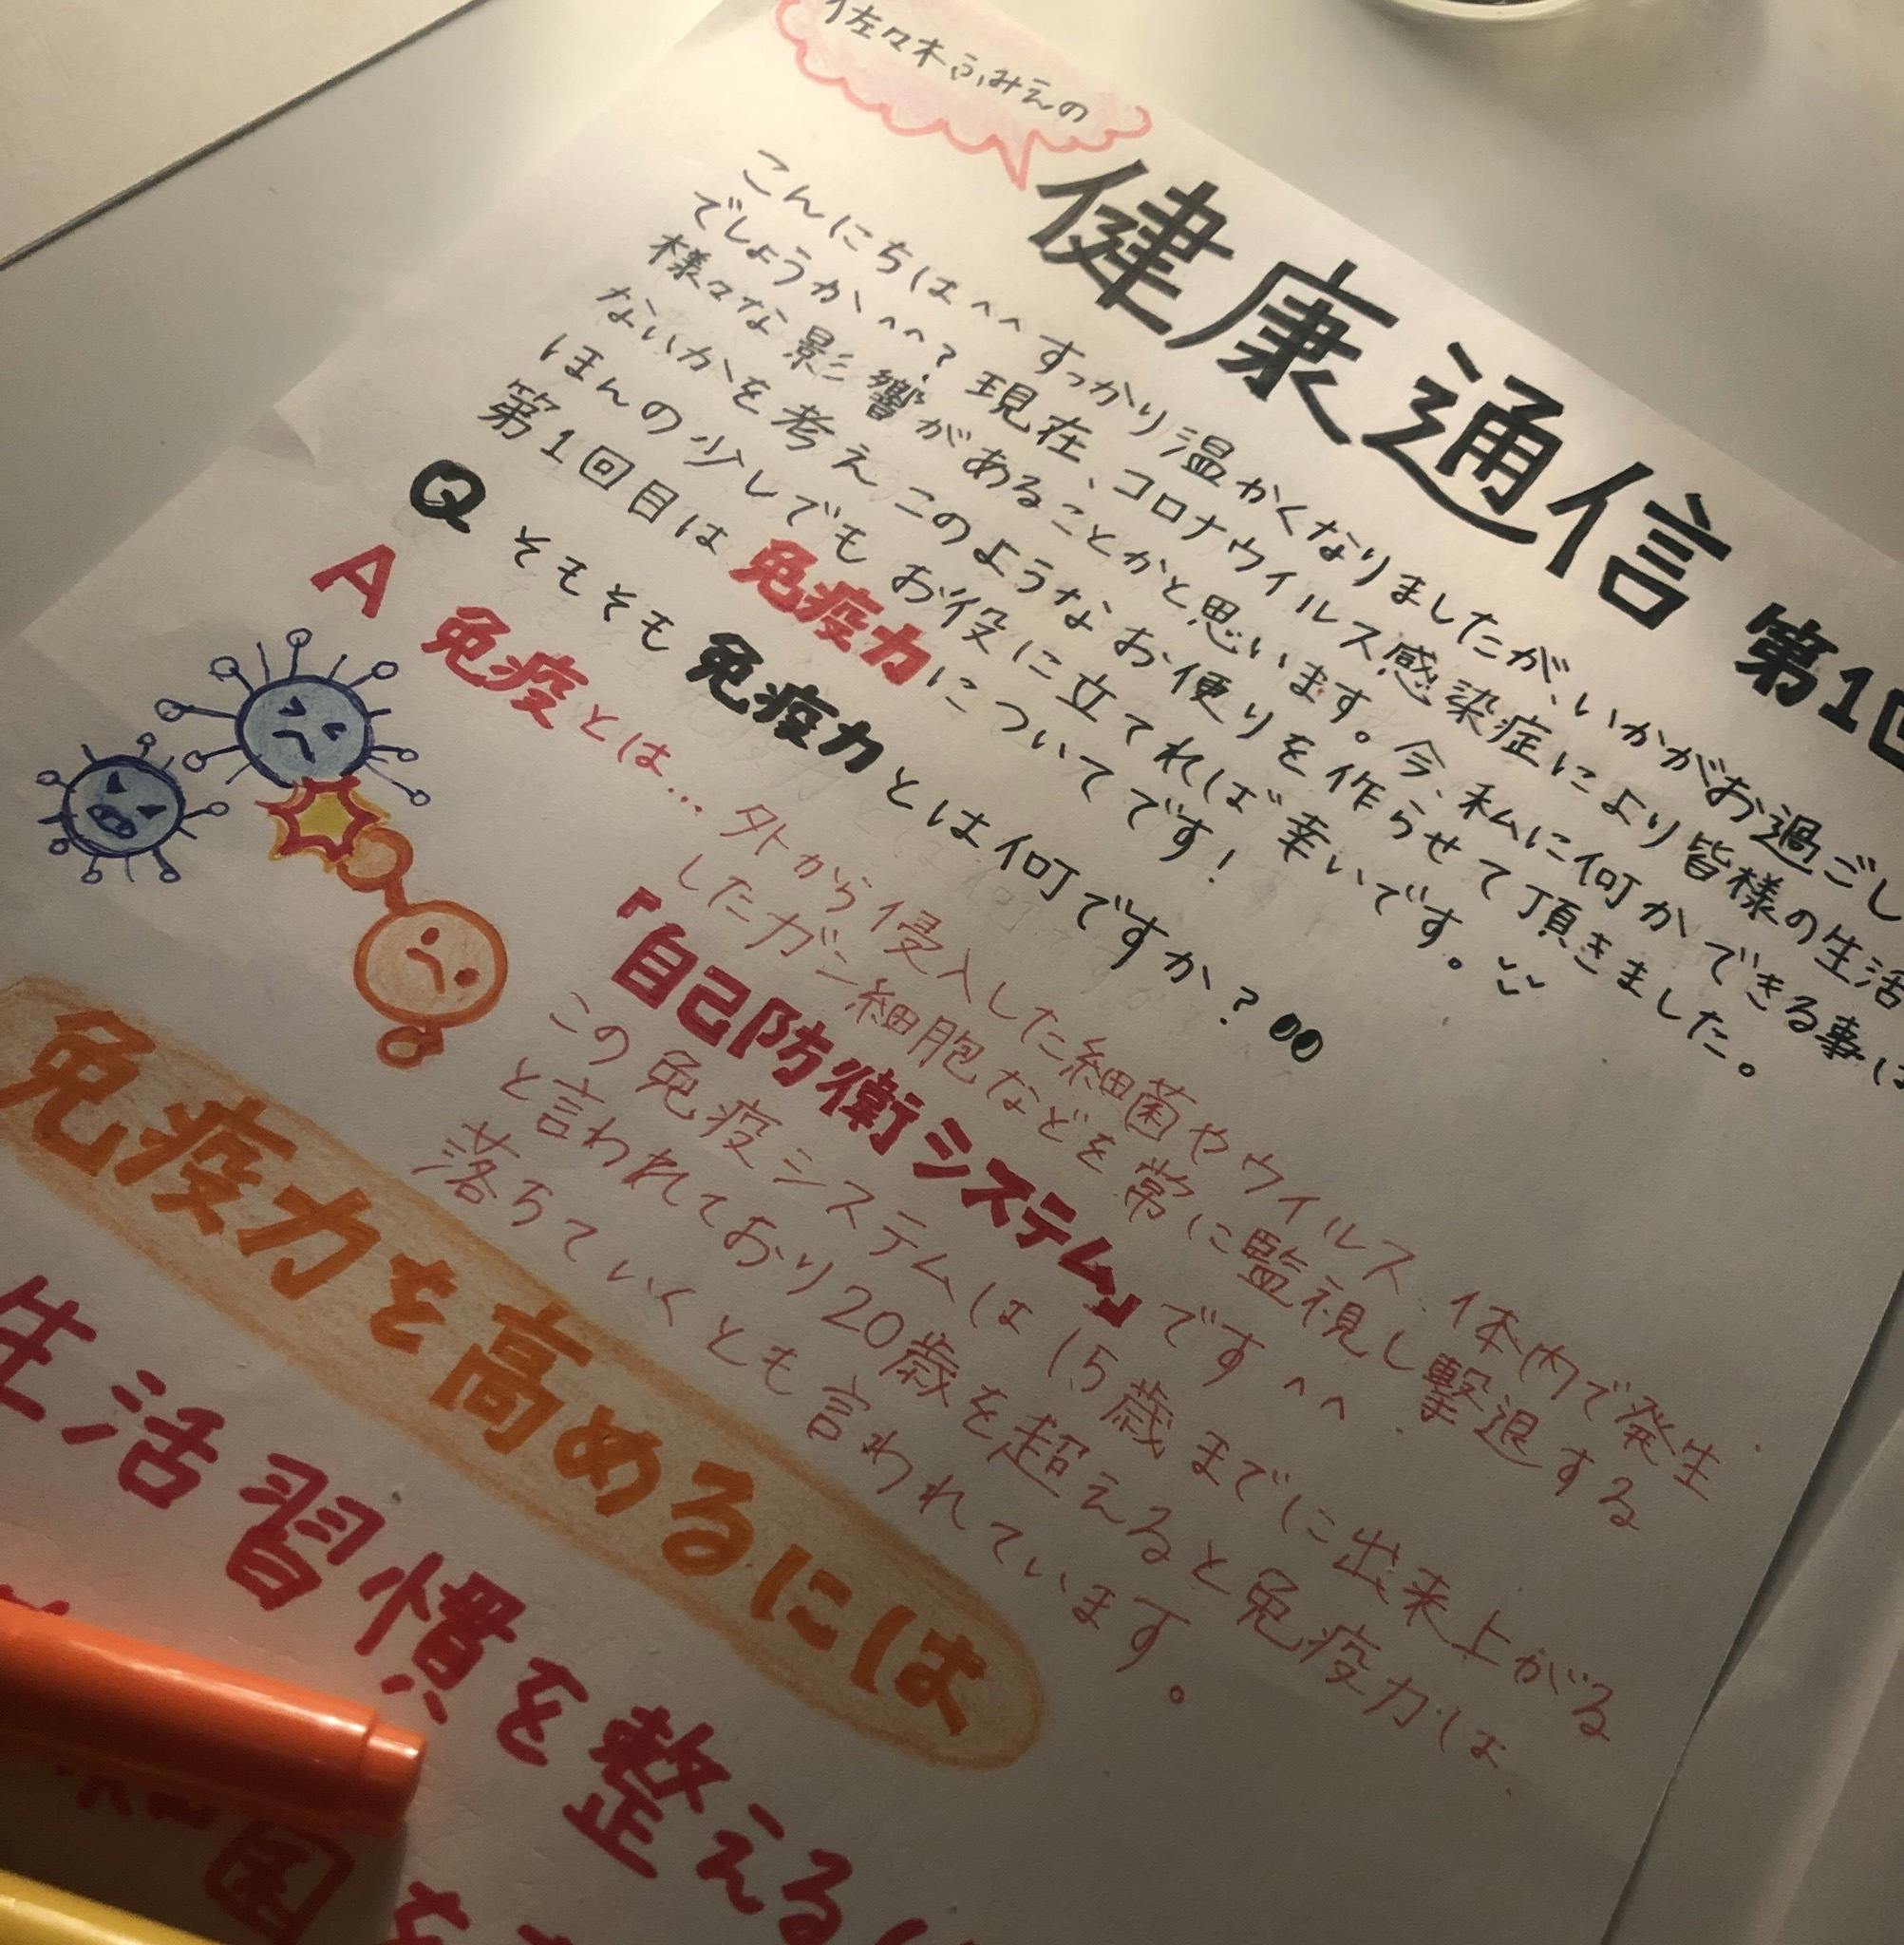 佐々木ふみえの
健康通信 第1回
こんにちは^^すっかり温かくなりましたが、いかがお過ごし
でしょうか^^?現在、コロナウイルス感染症により皆様の生活
様々な影響があることかと思います。今、私に何かできる事は
ないかを考えこのようなお便りを作らせて頂きました。
ほんの少しでもお役に立てれば幸いです。
第1回目は免疫力についてです!
Q そもそも免疫力とは何ですか?
A 免疫とは…外から侵入した細菌やウイルス、体内で発生
したガン細胞などを常に監視し撃退する
『自己防衛システム』です^^
この免疫システムは15歳までに出来上がる
と言われており20歳を超えると免疫力は
落ちていくとも言われています。
免疫力を高めるには
生活習慣を整える
菌を